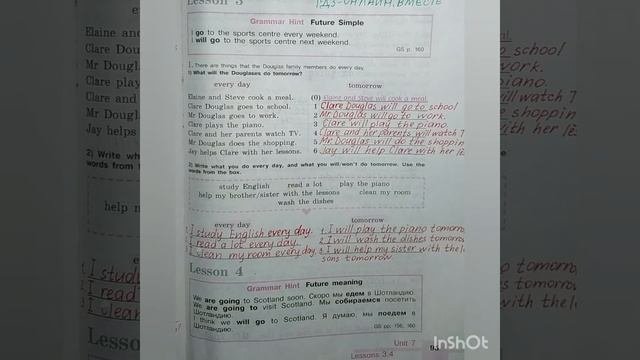 Lesson 3
ГДЗ-ОНЛАЙН. ВМЕСТЕ
Grammar Hint Future Simple
I go to the sports centre every weekend.
I will go to the sports centre next weekend.
GS p. 160
1. There are things that the Douglas family members do every day.
1) What will the Douglases do tomorrow?
every day
tomorrow
Elaine and Steve cook a meal.
(0) Elaine and Steve will cook a meal.
Clare Douglas goes to school.
1 Clare Douglas will go to school
Mr Douglas goes to work.
2 Mr Douglas will go to work.
Clare plays the piano.
3 Clare will play the piano.
Clare and her parents watch TV.
4 Clare and her parents will watch T
Mr Douglas does the shopping.
5 Mr Douglas will do the shoppin
Jay helps Clare with her lessons.
6 Jay will help Clare with her le
2) Write what you do every day, and what you will/won't do tomorrow. Use the
words from the box.
study English read a lot play the piano
help my brother/sister with the lessons clean my room
wash the dishes
every day
tomorrow
1 I study English every day.
1 I will play the piano tomorrow
2 I read a lot every day.
2 I will wash the dishes tomorrow
3 I clean my room every day.
3 I will help my sister with the les
sons tomorrow
Lesson 4
Grammar Hint Future meaning
We are going to Scotland soon. Скоро мы едем в Шотландию.
We are going to visit Scotland. Мы собираемся посетить
Шотландию.
I think we will go to Scotland. Я думаю, мы поедем в
Шотландию.
GS pp. 156, 160
Unit 7
Lessons 3,4
InShOt